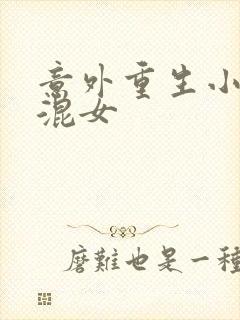 意外重生小
混女
磨難也是一種